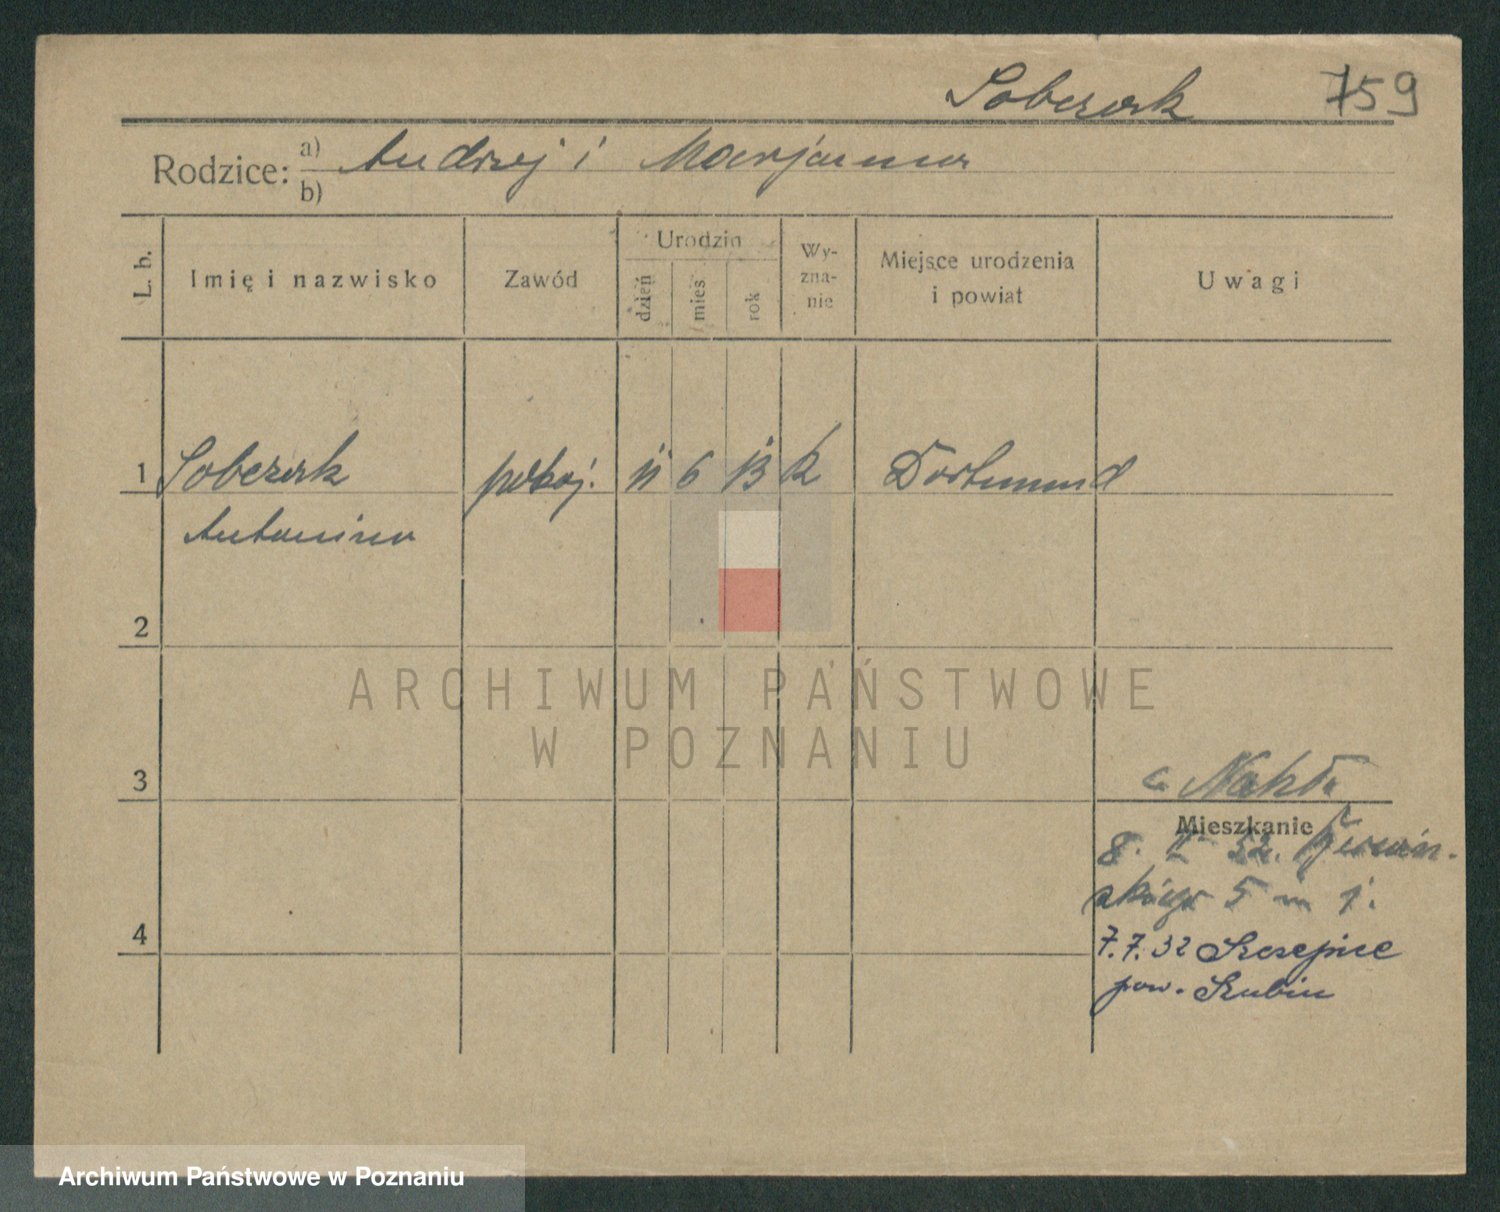 Sobczak 759
Rodzice: a) Andrzej i Marjanna
b)
L. b. Imię i nazwisko Zawód Urodzin dzień mies rok Wyznanie Miejsce urodzenia i powiat Uwagi
1 Sobczak pokoj. 11 6 13 k Dortmund
Antonina
2
ARCHIWUM PAŃSTWOWE
W POZNANIU
3
Nakło
Mieszkanie
8. 32.
skiego 5 m 1.
4
7.7.32 Szczepice
pow. Szubin
Archiwum Państwowe w Poznaniu